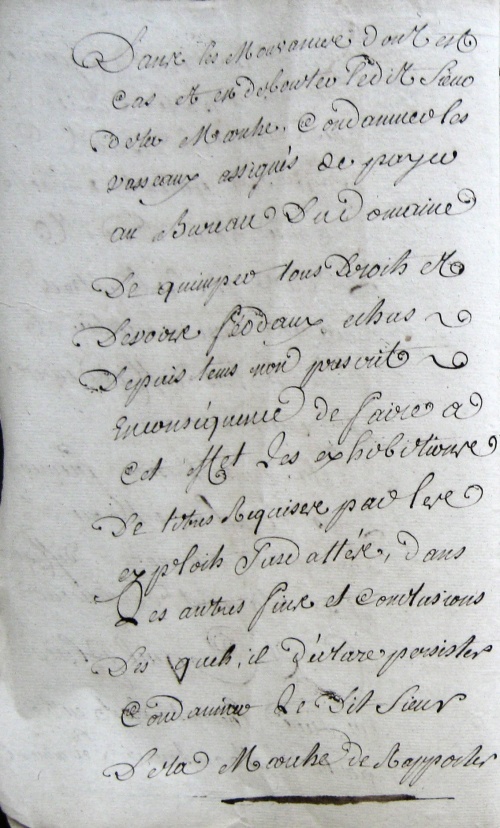 Dans les Mouvances dont est
Cas et en debouter ledit Sieur
Dela Marche, Condamner les
vasseaux assignés de payer
au Bureau Du Domaine
De quimper tous Droits et
Devoirs féodaux echus
Depuis tems non prescrit
Enconséquence de faire a
Cet les exhibitions
De titres Requises par les
exploits Susdattés, dans
Les autres fins et Conclusions
Des quels, il Déclare persister
Condamner Le Dit Sieur
Dela Marche de Rapporter